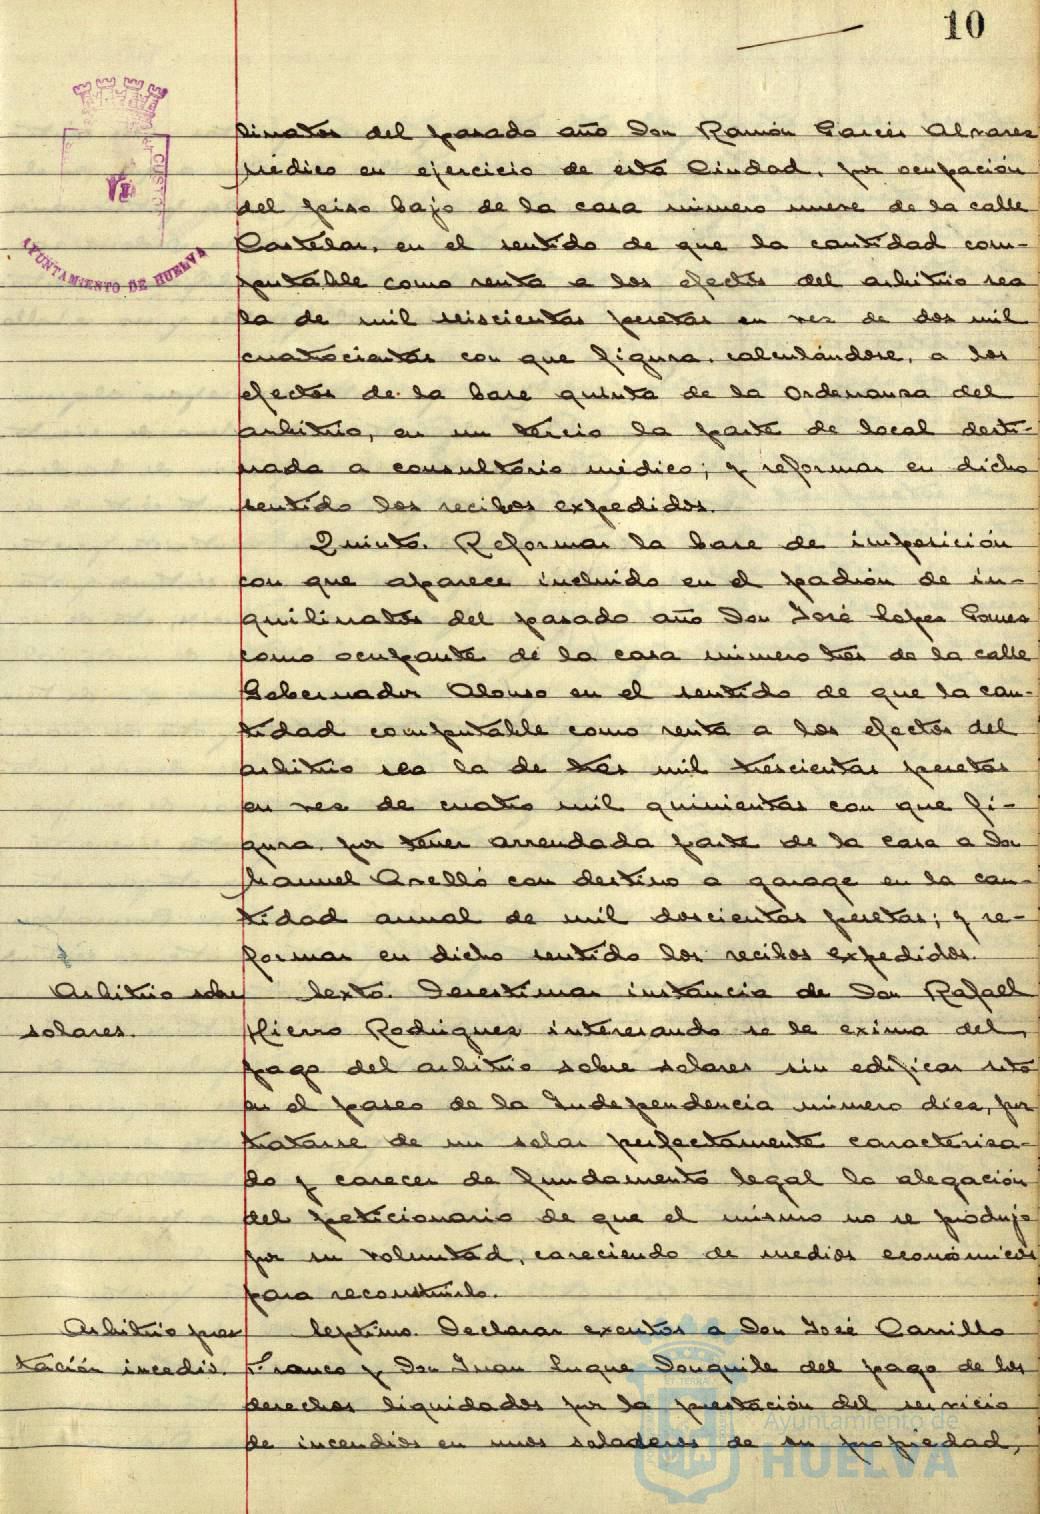 10
AYUNTAMIENTO DE HUELVA
linatos del pasado año Don Ramón García Alvarez
Médico en ejercicio de esta Ciudad, por ocupación
del piso bajo de la casa número nueve de la calle
Castelar, en el sentido de que la cantidad com-
putable como renta a los efectos del arbitrio sea
la de mil seiscientas pesetas en vez de dos mil
cuatrocientas con que figura, calculándose, a los
efectos de la base quinta de la Ordenanza del
arbitrio, en un tercio la parte de local desti-
nada a consultorio médico; y reformar en dicho
sentido los recibos expedidos.
Quinto. Reformar la base de imposición
con que aparece incluido en el padrón de in-
quilinatos del pasado año Don José Lopez Gomez
como ocupante de la casa número tres de la calle
Gobernador Alonso en el sentido de que la can-
tidad computable como renta a los efectos del
arbitrio sea la de tres mil trescientas pesetas
en vez de cuatro mil quinientas con que fi-
gura, por tener arrendada parte de la casa a Don
Manuel Arelló con destino a garage en la can-
tidad anual de mil doscientas pesetas; y re-
formar en dicho sentido los recibos expedidos.
Arbitrio sobre
solares.
Sexto. Desestimar instancia de Don Rafael
Hierro Rodriguez interesando se le exima del
pago del arbitrio sobre solares sin edificar sito
en el paseo de la Independencia número diez, por
tratarse de un solar perfectamente caracteriza-
do y carecer de fundamento legal la alegación
del peticionario de que el mismo no se produjo
por su voluntad, careciendo de medios económicos
para reconstruirlo.
Arbitrio pres
tación incedio.
Septimo. Declarar exentos a Don José Carrillo
Franco y Don Juan Luque Donquile del pago de los
derechos liquidados por la prestación del servicio
de incendios en unos saladeros de su propiedad,
Ayuntamiento de
HUELVA